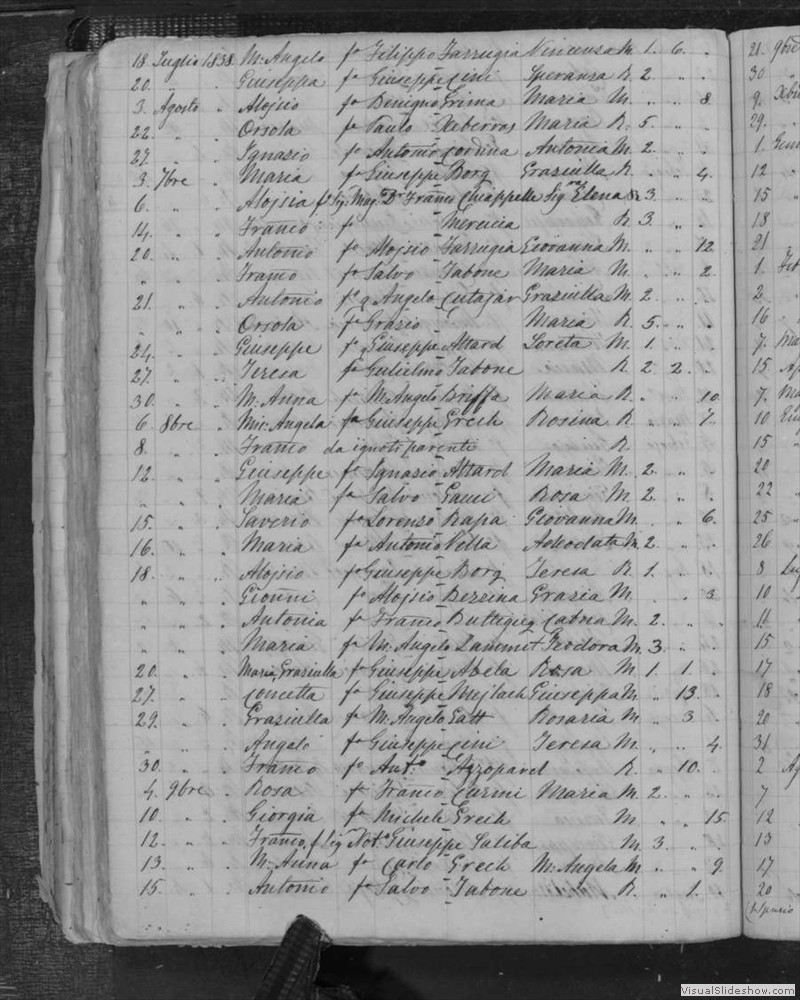 18. Luglio 1838. M: Angelo fo Filippo Farrugia Vincensa M. 1. 6. .
20. " . Giuseppa fa Giuseppe Cini Speransa R. 2. " .
3. Agosto . Aloisio fo Benigno Grima Maria M. " " 8.
22. " . Orsola fa Paulo Xeberras Maria R. 5. "
27. " . Ignasio fo Antonio Cordina Antonia M. 2. "
3. 7bre . Maria fa Giuseppe Borg Grasiulla R. . " 4.
6. " . Aloisia f Sig. Mag. Dr. Franco Chiappelle Sigra Elena R. 3 " .
14. " . Franco fo Mercieca R. 3. " .
20. " . Antonio fo Aloisio Farrugia Giovanna M. " " 12.
" " . Franco fo Salvo Tabone Maria M. . " 2.
21. " . Antonio fo q Angelo Cutajar Grasiulla M. 2. " .
" " . Orsola fa Grasio Maria R. 5. " .
24. " . Giuseppe fo Giuseppe Attard Loreta M. 1. " .
27. " . Teresa fa Gulielmo Tabone R. 2. 2. .
30. " . M: Anna fa M: Angelo Briffa Maria R. " " 10.
6. 8bre . Angela fa Giuseppe Grech Rosina R. " " 7.
8. " . Franco da ignoti parenti R.
12. " . Giuseppe fo Ignasio Attard Maria M. 2. " .
" " . Maria fa Salvo Gauci Rosa M. 2. " .
15. " . Saverio fo Lorenso Rapa Giovanna M. . " 6.
16. " . Maria fa Antonio Vella Adeodata M. 2. " .
18. " . Aloisio fo Giuseppe Borg Teresa R. 1. " .
" " . Gionni fo Aloisio Bessina Grasia M. . " 3
" " . Antonia fa Franco Buttigieg Catna M. 2. " .
" " . Maria fa M. Angelo Sammut Teodora M. 3. " .
20. " . Maria Grasiulla fa Giuseppe Abela Rosa M. 1. 1. .
27. " . Concetta fa Giuseppe Mejlach Giuseppa M. " 13. .
29. " . Grasiulla fa M. Angelo Gatt Rosaria M. " 3 .
" " . Angelo fo Giuseppe Cini Teresa M. " " 4.
30. " . Franco fo Anto. Azzopardi R. " 10. .
4. 9bre . Rosa fa Franco Curmi Maria M. 2. " .
10. " . Giorgia fa Michele Grech M. " " 15.
12. " . Franco, f Sig Noto Giuseppe Saliba M. 3. " .
13. " . M: Anna fa Carlo Grech M: Angela M. " " 9.
15. " . Antonio fo Salvo Tabone R. " 1. .
21.
30
9.
29.
1.
12
15
18
21
1.
2
16
7.
15.
7.
10
15
20
22
25
26
8
10
11
15
17
18
20
31
2
7
12
13
17
20
VisualSlideshow.com